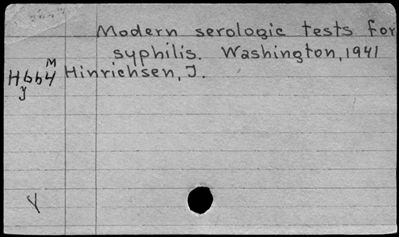 Modern serologic tests for
syphilis. Washington, 1941
M
H664 Hinrichsen, J.
J
Y